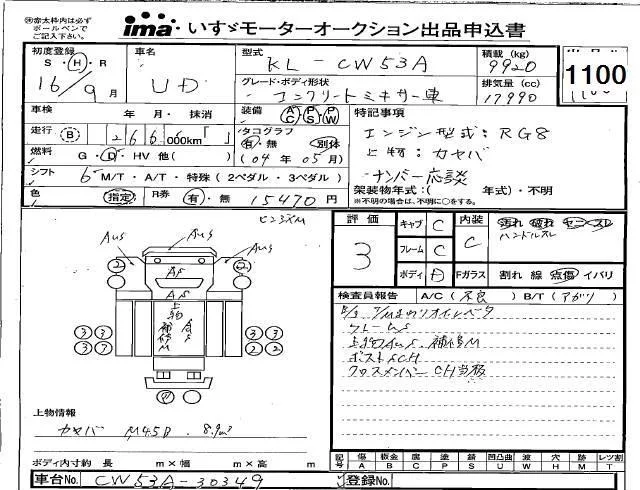 ㊟赤太枠内は必ず
ボールペンで
ご記入下さい。
ima いすゞモーターオークション出品申込書
初度登録 車名 型式 積載 (kg)
S・H・R KL-CW53A 9920
16/9月 UD グレード・ボディ形状 排気量 (cc)
コンクリートミキサー車 17990
1100
車検 年 月・抹消 装備 AC PS PW 特記事項
走行 B 266,000km「 」 タコグラフ エンジン型式:RG8
有・無 別体 上物:カヤバ
燃料 G・D・HV 他( ) (04年05月) ナンバー応談
シフト 6 M/T・A/T・特殊(2ペダル・3ペダル) 架装物年式:( 年式)・不明
※不明の場合は、不明に○をする。
色 指定 R券 有・無 15470円
ピン3ズM
AUS AUS
AS
AS
上物補修M
2 2
3 3 3 3
3 7 3 2
評価 キャブ C 内装
3 フレーム C C 汚れ 破れ センヌスレ
ハンドルスレ
ボディ A Fガラス 割れ 線 点傷 イバリ
検査員報告 A/C(不良) B/T(アガリ)
フレームS
上物AUS、補修M
ポストSCH
クロスメンバーCH当板
上物情報
カヤバ M45D 8.9m³
ボディ内寸約 長 m×幅 m×高 m
記号 傷 板金 腐 塗 錆 凹凸曲 波 穴 跡 レツ割
A B C P S U W H M T
車台No. CW53A-30349 登録No.